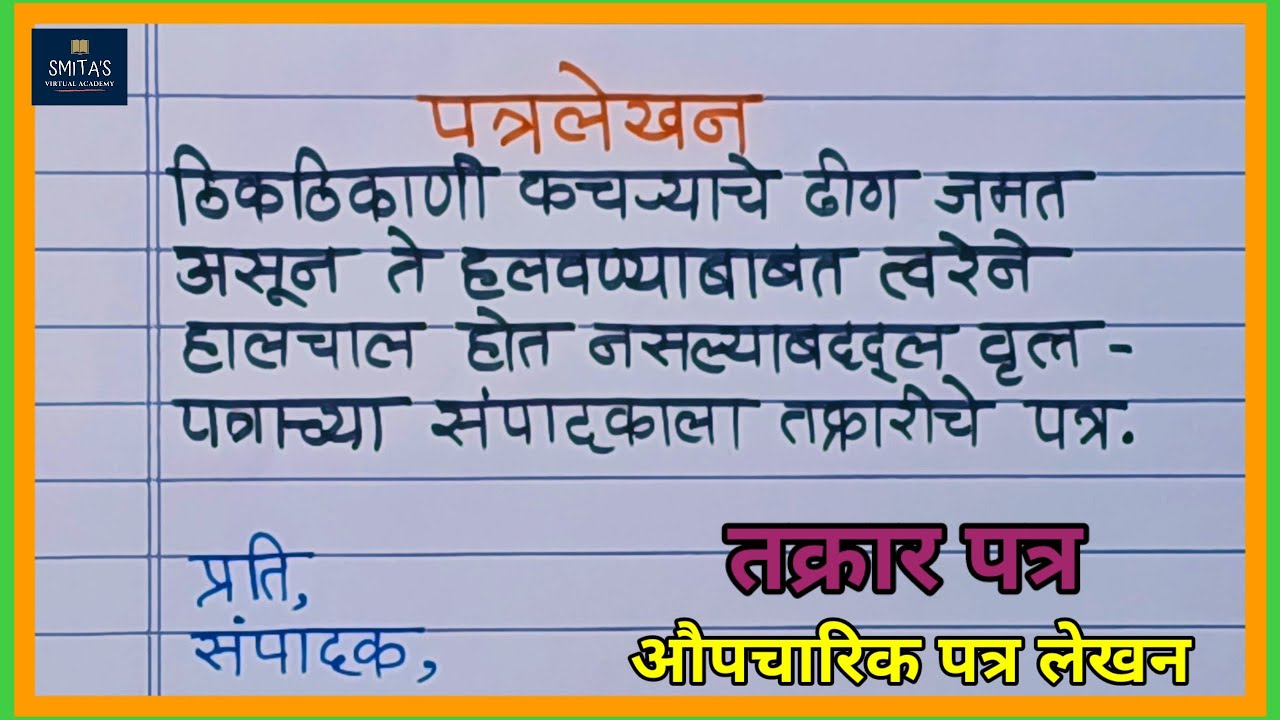 SMITA'S
VIRTUAL ACADEMY
पत्रलेखन
ठिकठिकाणी कचऱ्याचे ढीग जमत
असून ते हलवण्याबाबत त्वरेने
हालचाल होत नसल्याबदद्ल वृत्त -
पत्राच्या संपादकाला तक्रारीचे पत्र.
प्रति,
संपादक,
तक्रार पत्र
औपचारिक पत्र लेखन